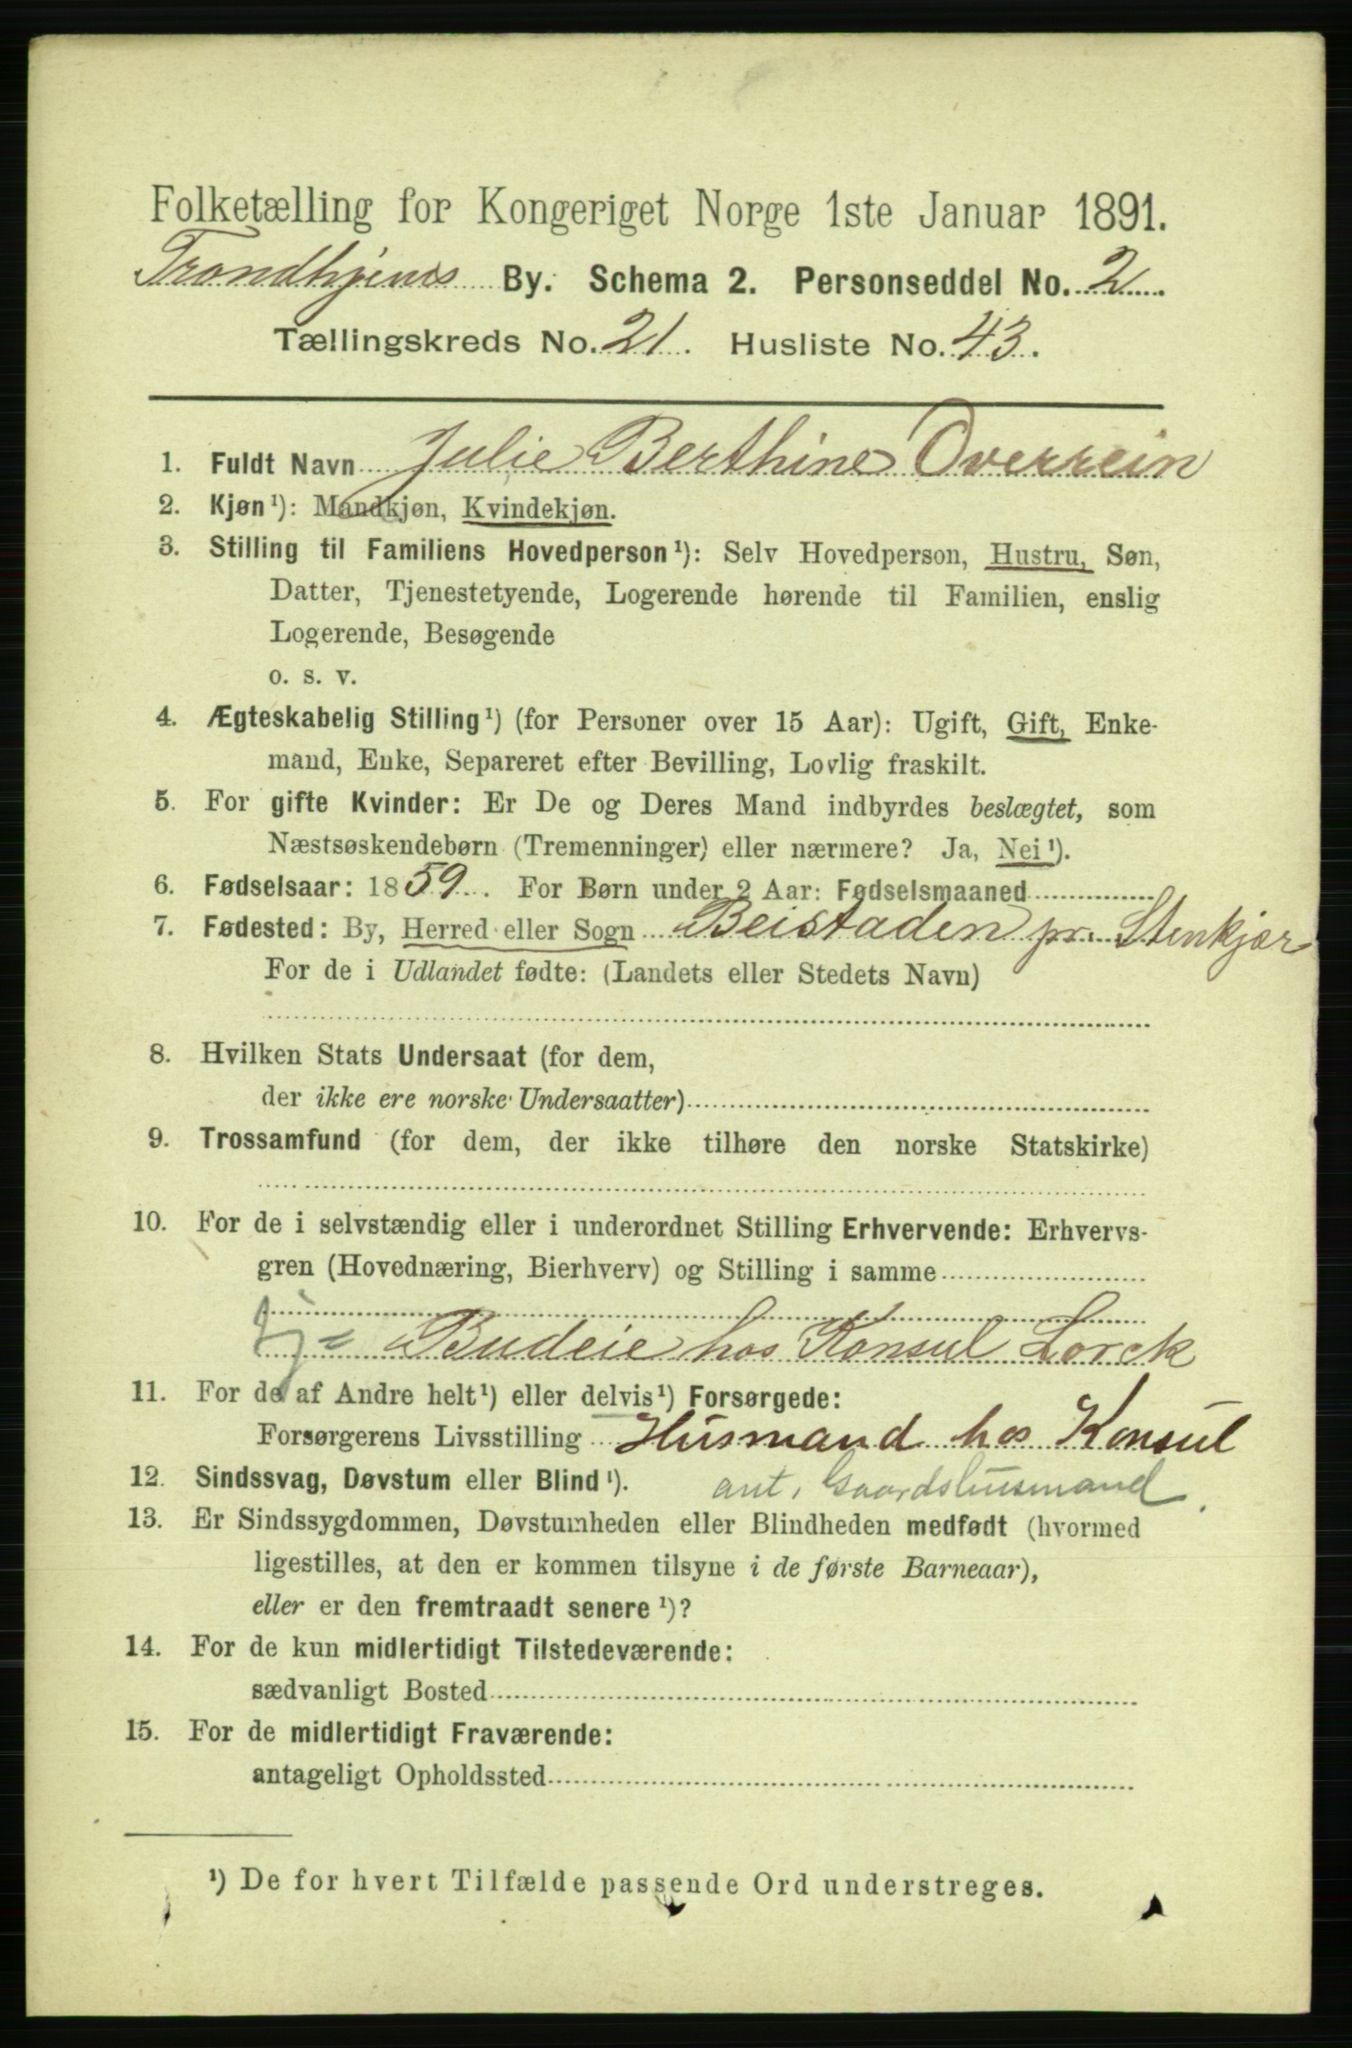 Folketælling for Kongeriget Norge 1ste Januar 1891.
Trondhjems By. Schema 2. Personseddel No. 2.
Tællingskreds No. 21. Husliste No. 43.
1. Fuldt Navn Julie Berthine Overrein
2. Kjøn¹): Mandkjøn, Kvindekjøn.
3. Stilling til Familiens Hovedperson¹): Selv Hovedperson, Hustru, Søn,
Datter, Tjenestetyende, Logerende hørende til Familien, enslig
Logerende, Besøgende
o. s. v.
4. Ægteskabelig Stilling¹) (for Personer over 15 Aar): Ugift, Gift, Enke-
mand, Enke, Separeret efter Bevilling, Lovlig fraskilt.
5. For gifte Kvinder: Er De og Deres Mand indbyrdes beslægtet, som
Næstsøskendebørn (Tremenninger) eller nærmere? Ja, Nei¹).
6. Fødselsaar: 1859. For Børn under 2 Aar: Fødselsmaaned
7. Fødested: By, Herred eller Sogn Beistaden pr. Stenkjær
For de i Udlandet fødte: (Landets eller Stedets Navn)
8. Hvilken Stats Undersaat (for dem,
der ikke ere norske Undersaatter)
9. Trossamfund (for dem, der ikke tilhøre den norske Statskirke)
10. For de i selvstændig eller i underordnet Stilling Erhvervende: Erhvervs-
gren (Hovednæring, Bierhverv) og Stilling i samme
Budeie hos Konsul Lorck
11. For de af Andre helt¹) eller delvis¹) Forsørgede:
Forsørgerens Livsstilling Husmand hos Konsul
12. Sindssvag, Døvstum eller Blind¹). ant. Gaardshusmand
13. Er Sindssygdommen, Døvstumheden eller Blindheden medfødt (hvormed
ligestilles, at den er kommen tilsyne i de første Barneaar),
eller er den fremtraadt senere¹)?
14. For de kun midlertidigt Tilstedeværende:
sædvanligt Bosted
15. For de midlertidigt Fraværende:
antageligt Opholdssted
¹) De for hvert Tilfælde passende Ord understreges.